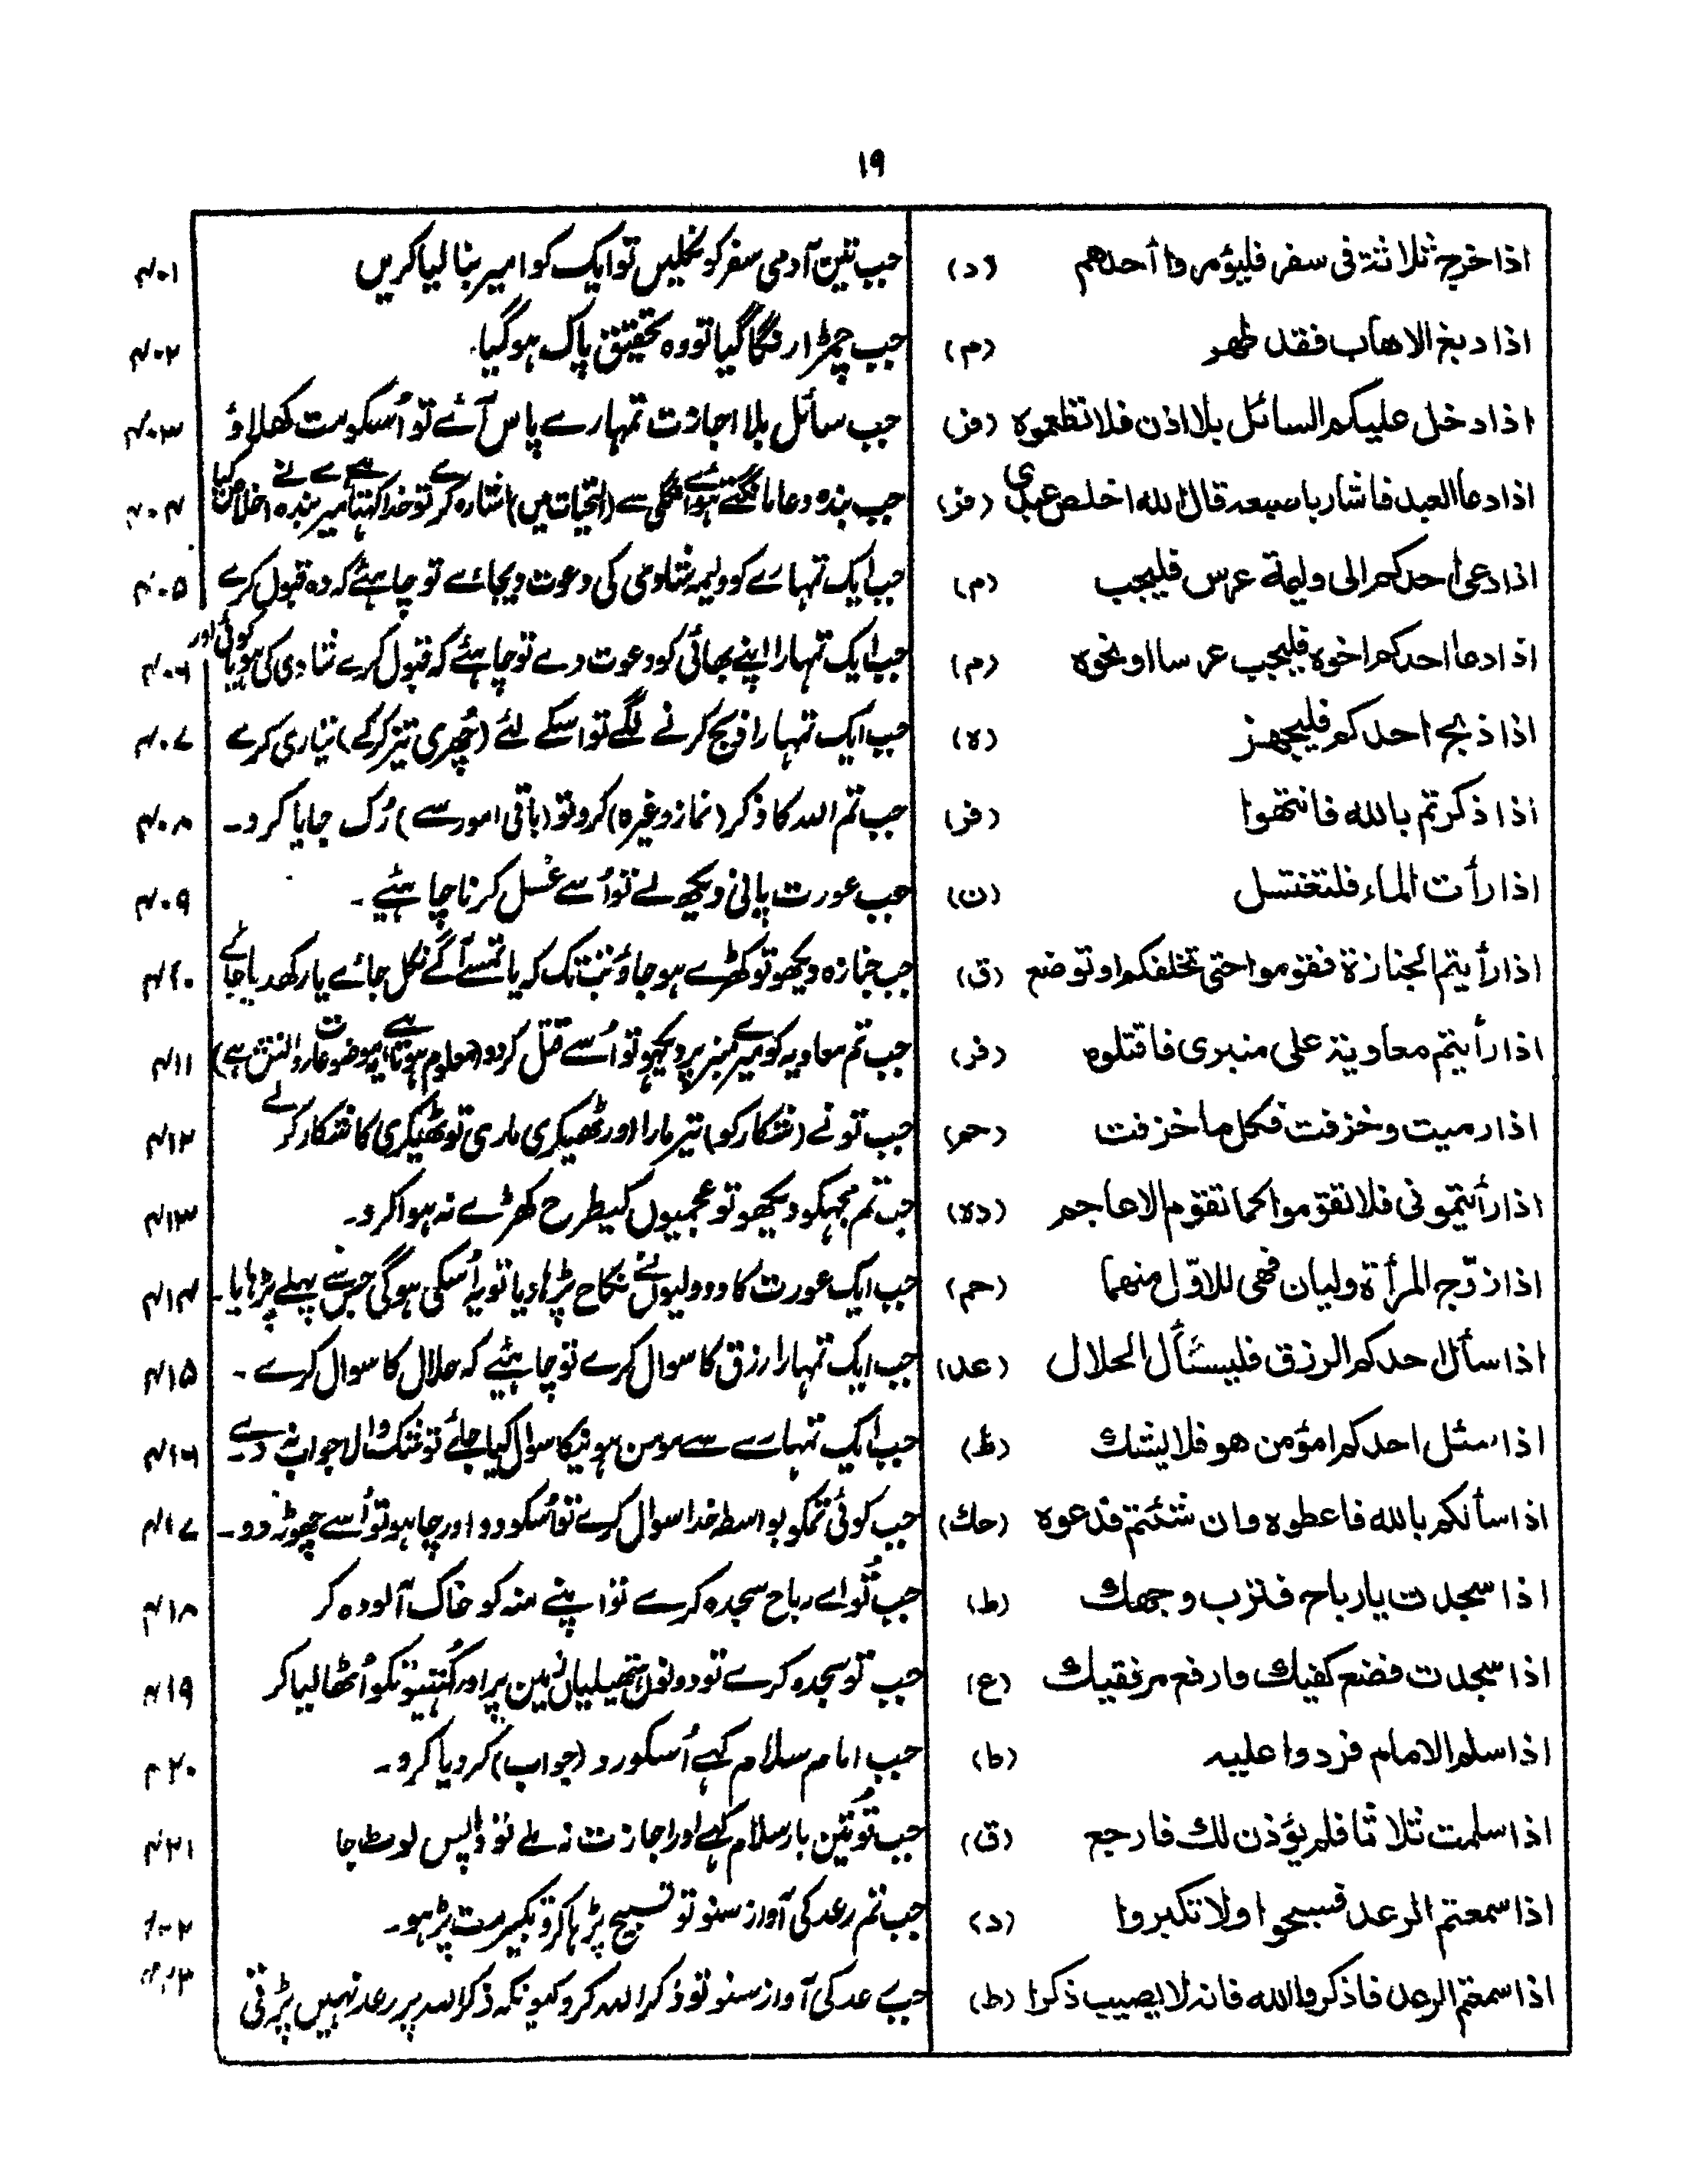 ۱۹
اذا خرج ثلاثة فی سفر فلیؤمروا أحدهم (د) جب تین آدمی سفر کو نکلیں تو ایک کو امیر بنا لیا کریں ۴۰۱
اذا دبغ الاهاب فقد طهر (م) جب چمڑا رنگا گیا تو وہ تحقیق پاک ہو گیا. ۴۰۲
اذا دخل علیکم السائل بلا اذن فلا تطعموه (فر) جب سائل بلا اجازت تمہارے پاس آئے تو اُسکو مت کھلاؤ ۴۰۳
اذا دعا العبد فاشار باصبعه قال الله اخلص عبدی (فر) جب بندہ دعا مانگتے ہوئے انگلی سے (التحیات میں) اشارہ کرے تو خدا کہتا ہے میرے بندہ نے اخلاص کیا ۴۰۴
اذا دعی احدکم الی ولیمة عرس فلیجب (م) جب ایک تہارے کو ولیمہ شادی کی دعوت دیجائے تو چاہئے کہ وہ قبول کرے ۴۰۵
اذا دعا احدکم اخوه فلیجب عرسا او نحوه (م) جب ایک تہارا اپنے بھائی کو دعوت دے تو چاہئے کہ قبول کرے شادی کی ہو یا کوئی اور ۴۰۶
اذا ذبح احدکم فلیجهز (ه) جب ایک تہارا ذبح کرنے لگے تو اسکے لئے (چُھری تیز کرکے) تیاری کرے ۴۰۷
اذا ذکرتم بالله فانتهوا (فر) جب تم اللہ کا ذکر (نماز وغیرہ) کرو تو (باقی امور سے) رُک جایا کرو۔ ۴۰۸
اذا رأت الماء فلتغتسل (ن) جب عورت پانی دیکھ لے تو اُسے غسل کرنا چاہئیے۔ ۴۰۹
اذا رأیتم الجنازة فقوموا حتی تخلفکم او توضع (ق) جب جنازہ دیکھو تو کھڑے ہو جاؤ تب تک کہ یا تمسے آگے نکل جائے یا رکھدیا جائے ۴۱۰
اذا رأیتم معاویة علی منبری فاقتلوه (فر) جب تم معاویہ کو میرے منبر پر دیکھو تو اُسے قتل کردو (معلوم ہوتا ہے یہ موضوعات روافض ہے) ۴۱۱
اذا رمیت وخزفت فکل ما خزفت (حم) جب تو نے (شکار کو) تیر مارا اور ٹھیکری ماری تو ٹھیکری کا شکار کر لے ۴۱۲
اذا رأیتمونی فلا تقوموا کما تقوم الاعاجم (ده) جب تم مجہکو دیکھو تو عجمیوں کیطرح کھڑے نہ ہوا کرو۔ ۴۱۳
اذا زوّج المرأة ولیان فهی للاوّل منهما (حم) جب ایک عورت کا دو ولیوں نے نکاح پڑہا دیا تو یہ اُسکی ہوگی جسنے پہلے پڑہایا۔ ۴۱۴
اذا سأل احدکم الرزق فلیسئأل الحلال (عد) جب ایک تمہارا رزق کا سوال کرے تو چاہئیے کہ حلال کا سوال کرے۔ ۴۱۵
اذا سئل احدکم امؤمن هو فلا یشک (ط) جب ایک تہارے سے مومن ہونیکا سوال کیا جائے تو شک والا جواب نہ دے۔ ۴۱۶
اذا سألکم بالله فاعطوه وان شئتم فدعوه (حك) جب کوئی تمکو بواسطہ خدا سوال کرے تو اُسکو دو اور چاہو تو اُسے چھوڑ دو۔ ۴۱۷
اذا سجدت یا رباح فترب وجهك (ط) جب تُو اے رباح سجدہ کرے تو اپنے منہ کو خاک آلودہ کر ۴۱۸
اذا سجدت فضع کفیك وارفع مرفقیك (ع) جب تو سجدہ کرے تو دونوں ہتھیلیاں زمین پر اور کُہنیونکو اُٹھا لیا کر ۴۱۹
اذا سلم الامام فردوا علیه (ط) جب امام سلام کہے اُسکو رد (جواب) کر دیا کرو۔ ۴۲۰
اذا سلمت ثلاثا فلم یؤذن لك فارجع (ق) جب تُو تین بار سلام کہے اور اجازت نہ ملے تو واپس لوٹ جا ۴۲۱
اذا سمعتم الرعد فسبحوا ولا تکبروا (د) جب تم رعد کی آواز سنو تو تسبیح پڑہا کرو تکبیر مت پڑہو۔
اذا سمعتم الرعد فاذکروا الله فانه لا یصیب ذکرا (ط) جب رعد کی آواز سنو تو ذکر اللہ کرو کیونکہ ذکر اللہ پر رعد نہیں پڑتی